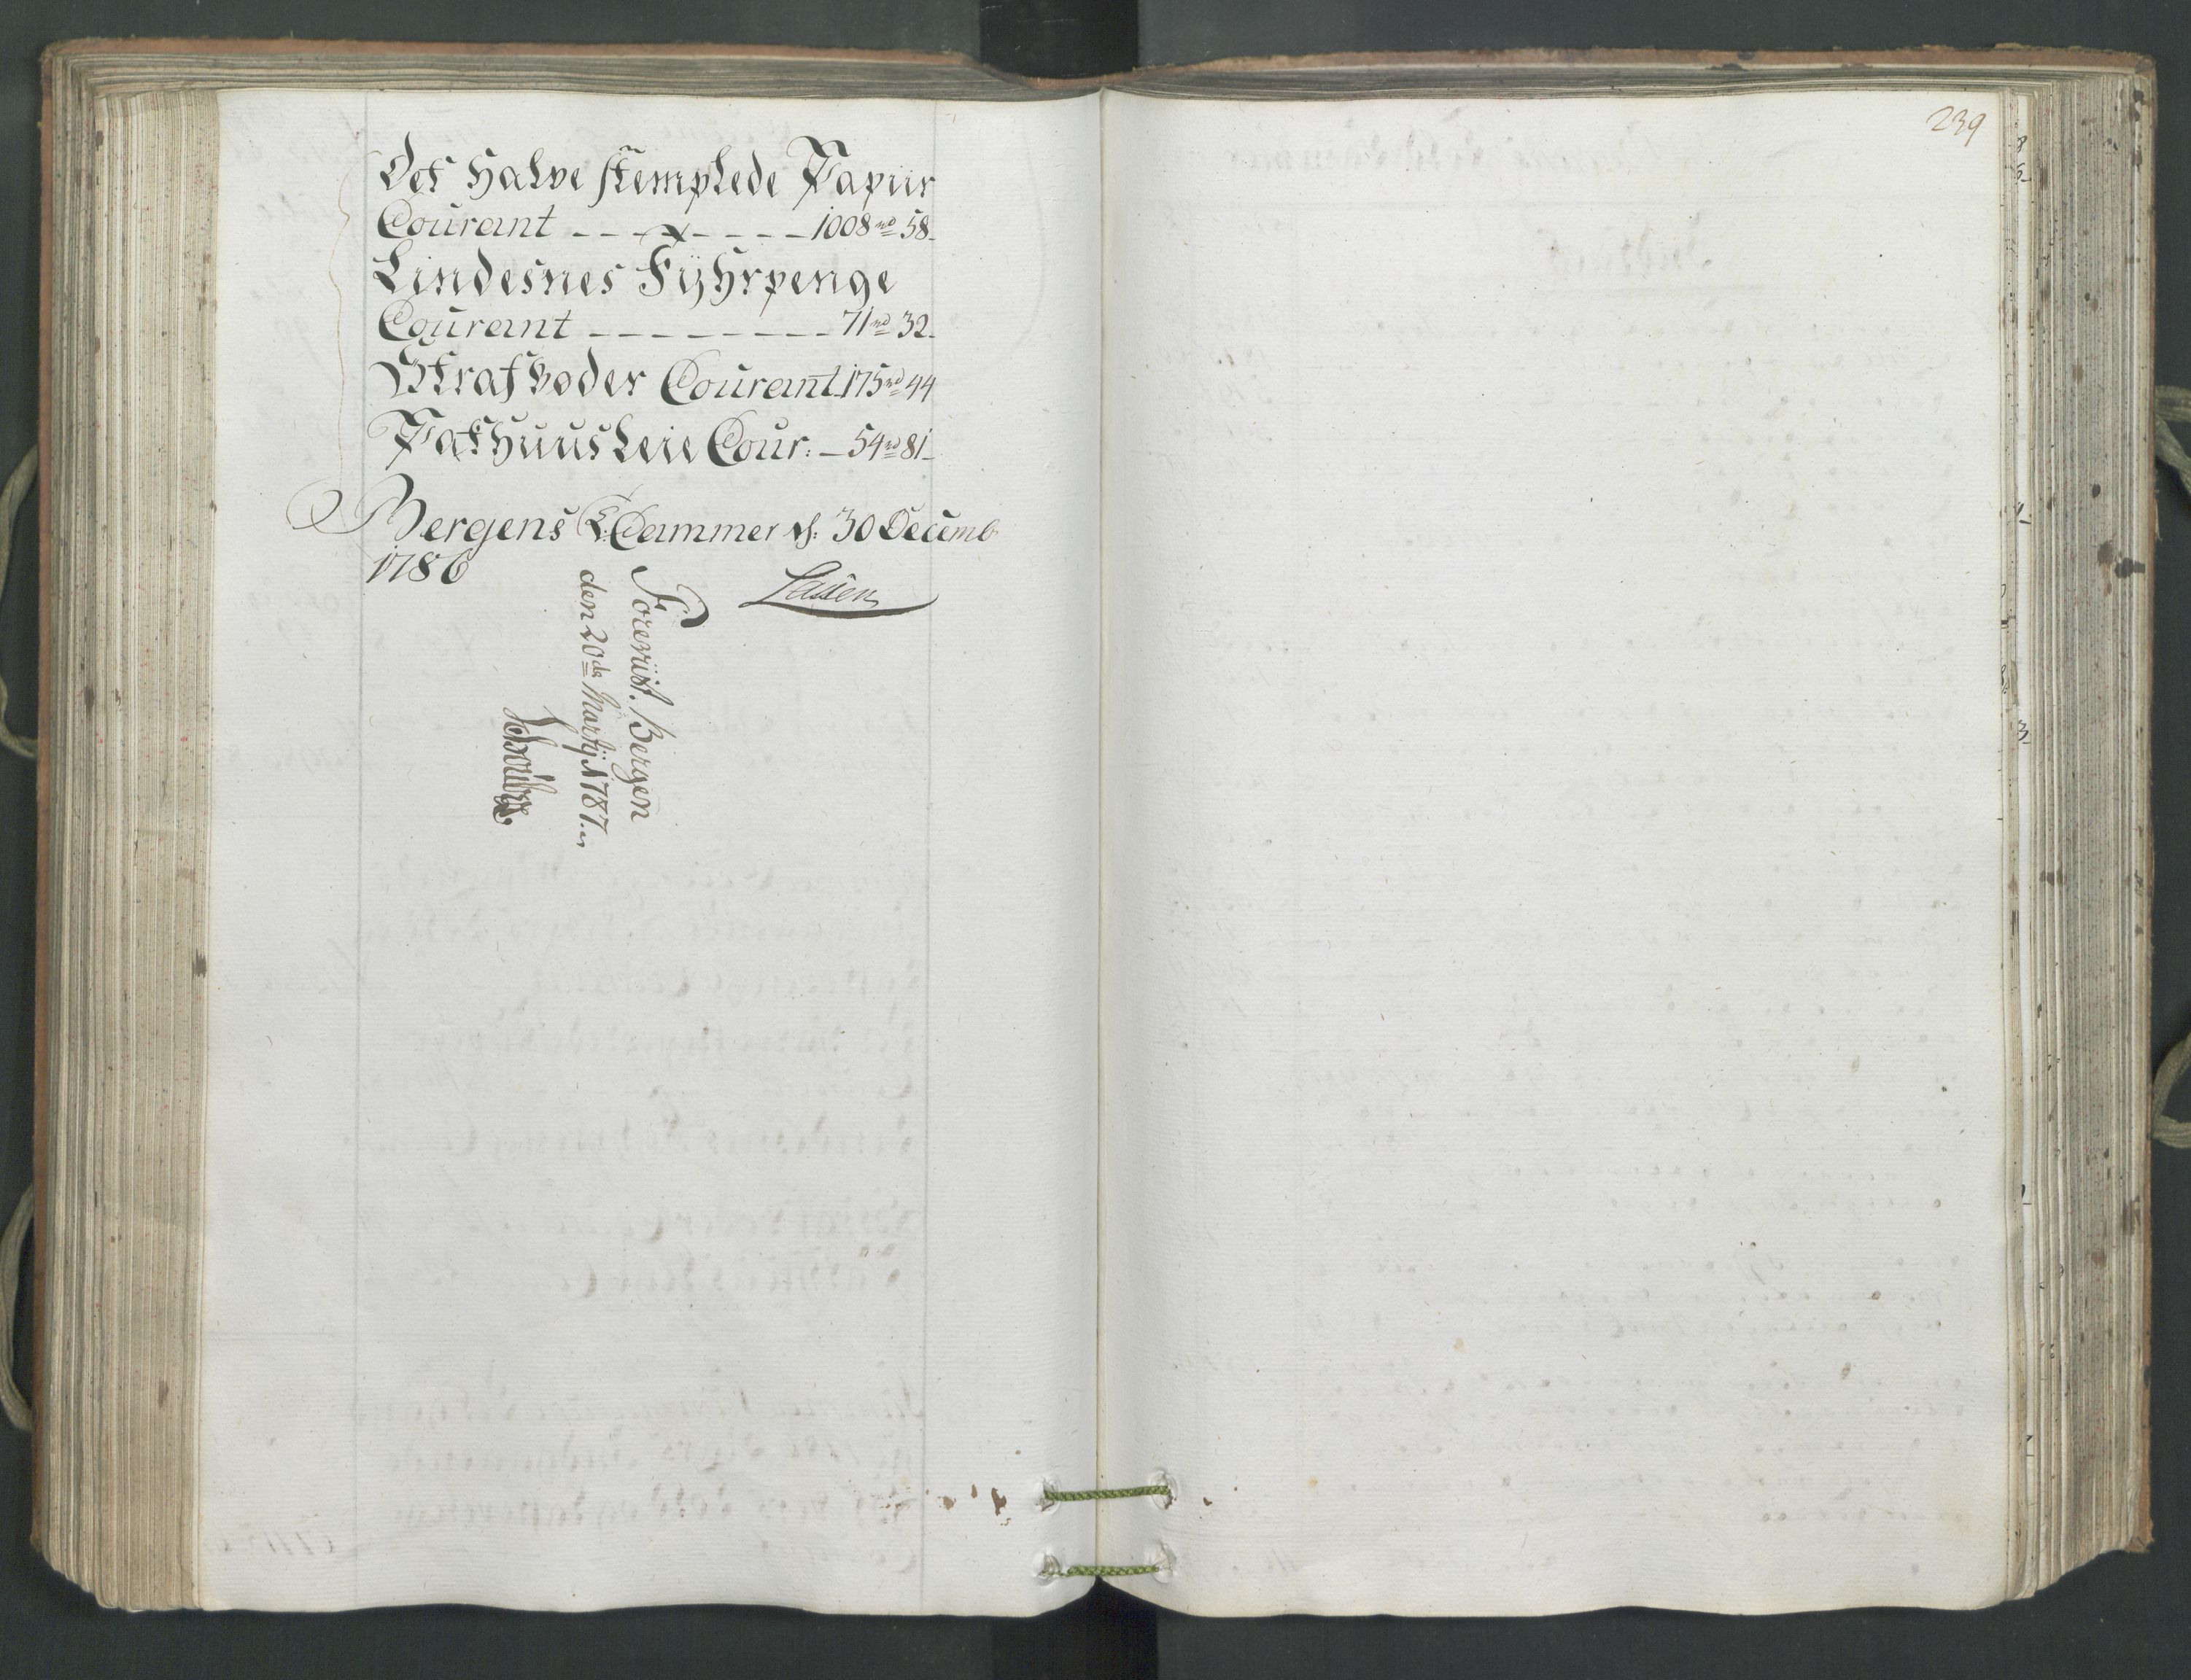 Det Halve stemplede Papiir
Courant - - - - - - - 1008 rd 58
Lindesnes Fÿhrpenge
Courant - - - - - - - - 71 rd 32
Strafboder Courant 175 rd 44
Pakhuus Leie Cour: - 54 rd 81
Bergens T. Cammer d: 30 Decemb
1786
Foreviist. Bergen
den 20de Martij 1787
239